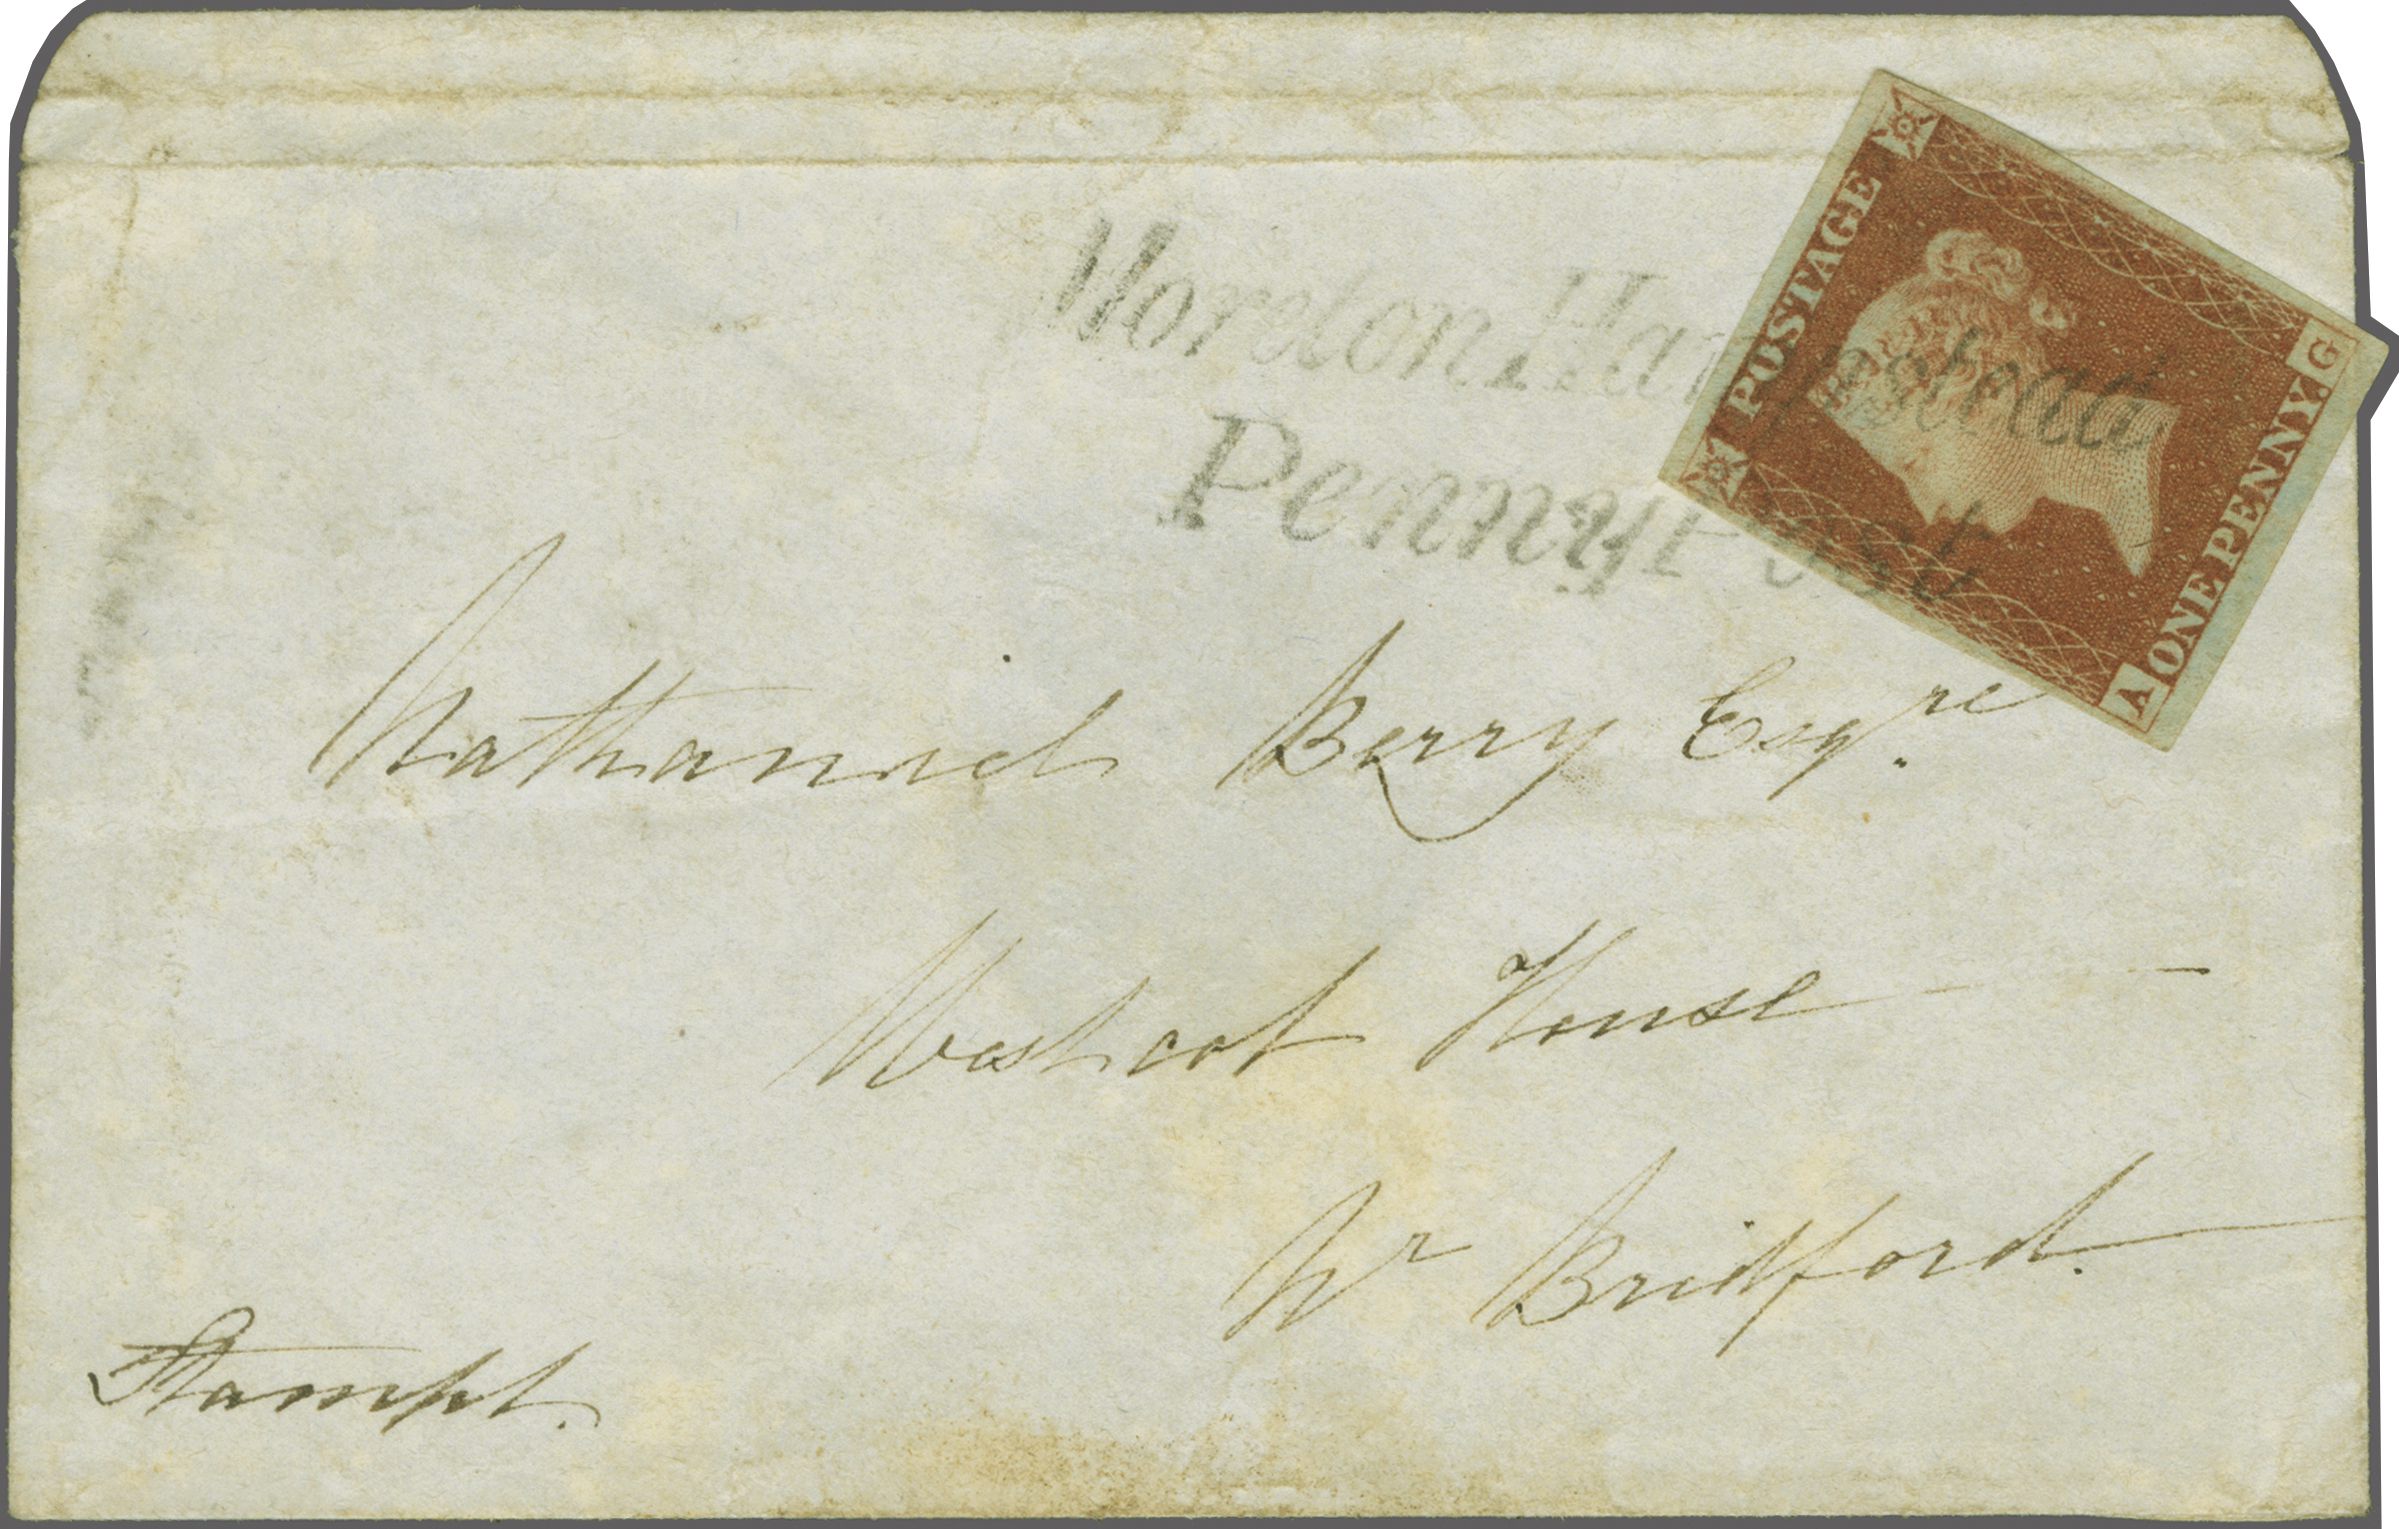 Moreton Hampstead
Penny Post
POSTAGE
ONE PENNY.
A G
Nathaniel Berry Esqre.
Westcot House
Nr Bridford.
Stampt.